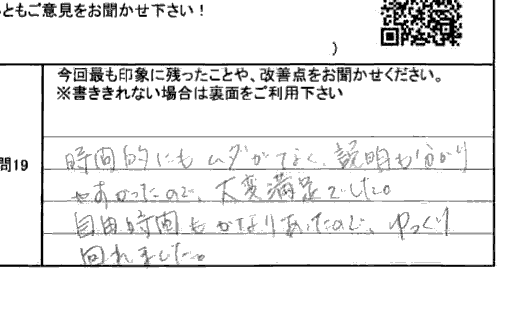 ともご意見をお聞かせ下さい！
）
今回最も印象に残ったことや、改善点をお聞かせください。
※書ききれない場合は裏面をご利用下さい
問19
時間的にもムダがなく、説明も分かり
やすかったので、大変満足でした。
自由時間もかなりあったので、ゆっくり
回れました。